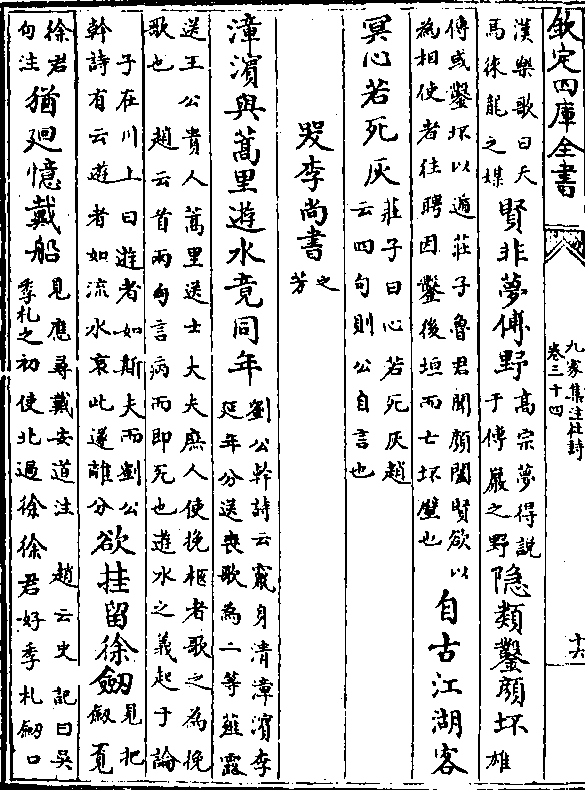 欽定四庫全書
九家集注杜詩
卷三十四
十六
漢樂歌曰天馬徠龍之媒賢非夢傅野高宗夢得說于傅巖之野隠類鑿顔坏雄
傳或鑿坏以遁莊子魯君聞顔闔賢欲以為相使者往聘因鑿後垣而亡坏壁也自古江湖客
冥心若死灰莊子曰心若死灰趙云四句則公自言也
哭李尚書之芳
漳濱與蒿里逝水竟同年劉公幹詩云竄身清漳濱李延年分送喪歌為二等薤露
送王公貴人蒿里送士大夫庶人使挽柩者歌之為挽歌也 趙云首兩句言病而即死也逝水之義起于論
子在川上曰逝者如斯夫而劉公幹詩有云逝者如流水哀此遂離分欲挂留徐劒見把劒覓
徐君句注猶廻憶戴船見應尋戴安道注 趙云史記曰吳季札之初使北過徐徐君好季札劒口